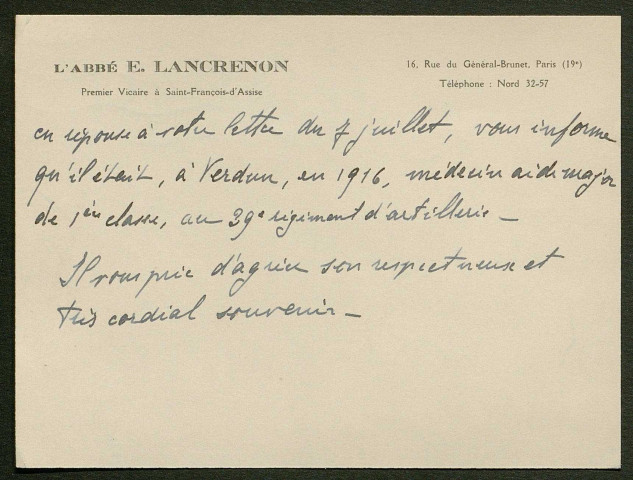 L'ABBÉ E. LANCRENON
Premier Vicaire à Saint-François-d'Assise
16, Rue du Général-Brunet, Paris (19e)
Téléphone : Nord 32-57
en réponse à votre lettre du 7 juillet, vous informe
qu'il était, à Verdun, en 1916, médecin aide major
de 1ère classe, au 39e régiment d'artillerie –
Il vous prie d'agréer son respectueux et
très cordial souvenir –